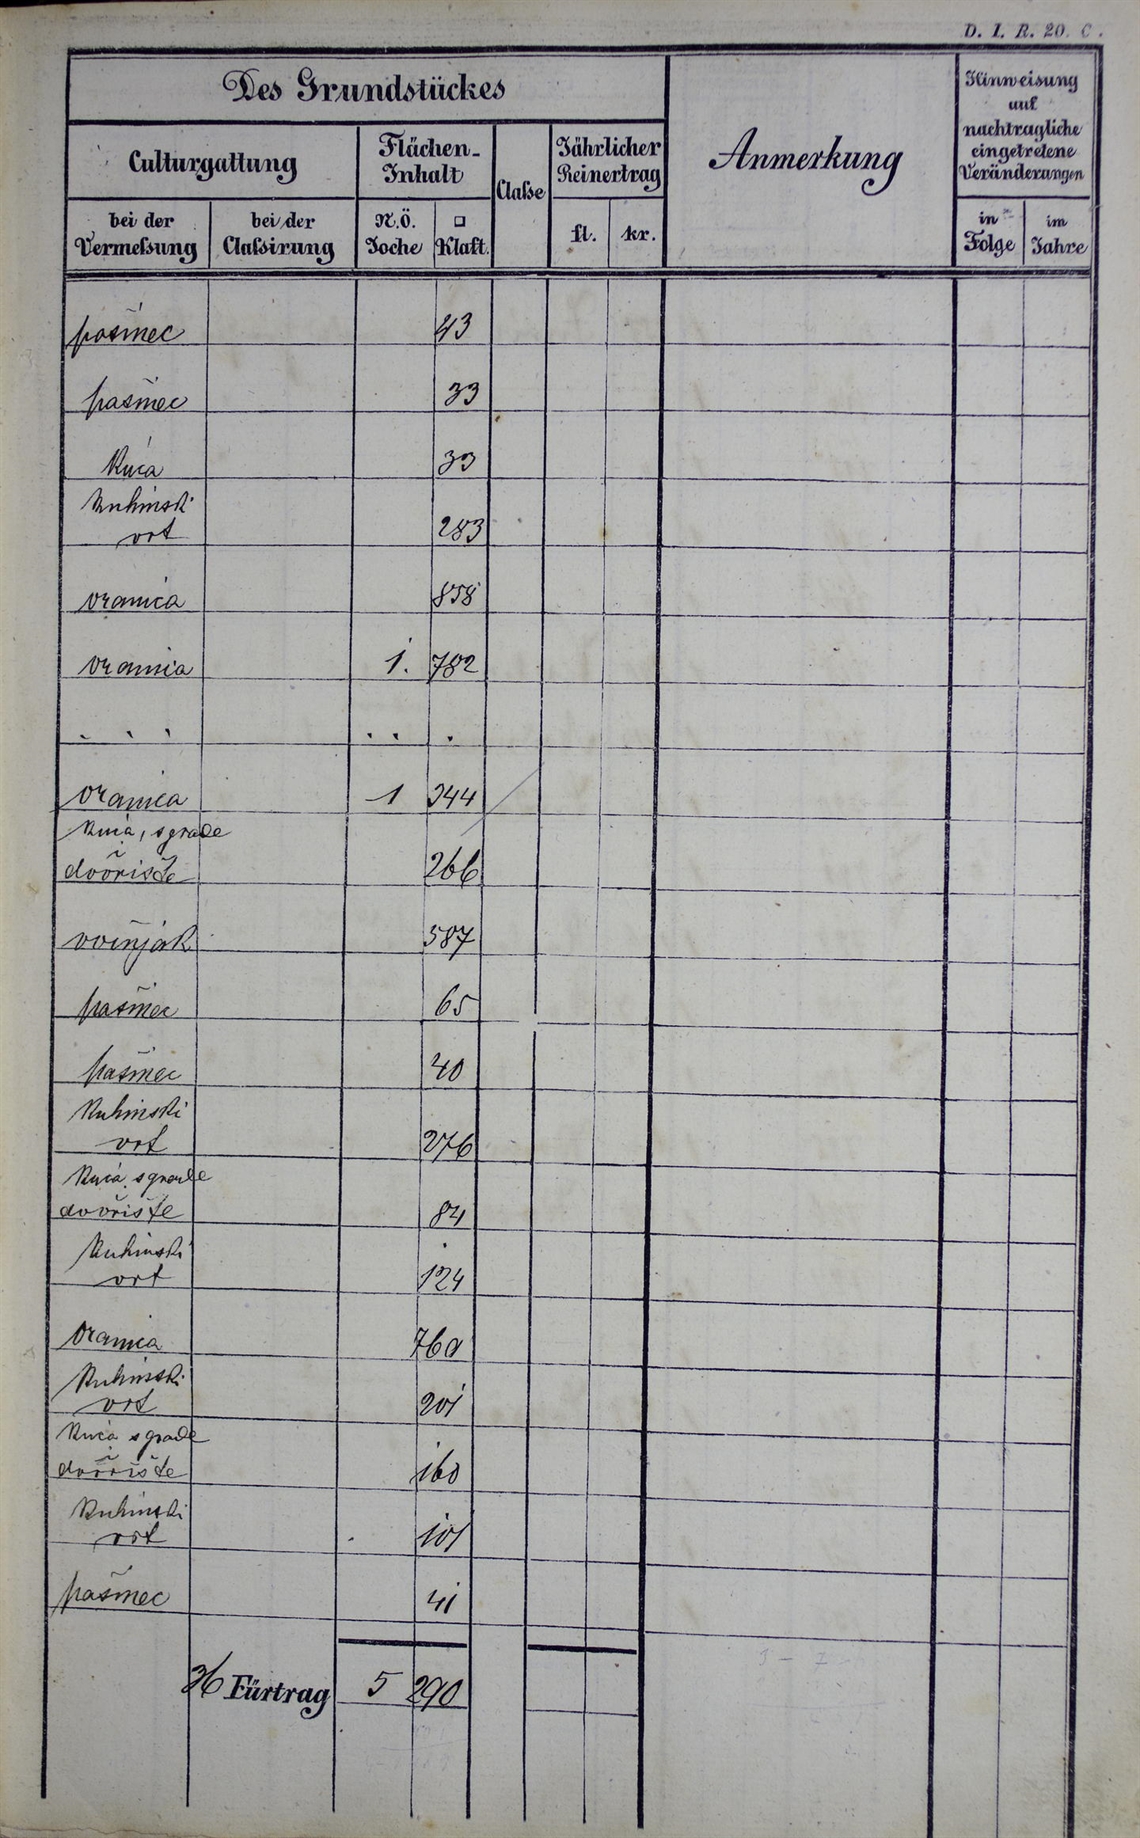 D. I. R. 20. C.
Des Grundstückes
Anmerkung
Hinweisung
auf
nachtragliche
eingetretene
Veränderungen
Culturgattung
Flächen-
Inhalt
Classe
Jährlicher
Reinertrag
bei der
Vermessung
bei der
Classirung
N.Ö.
Joche
□
Klaft.
fl.
kr.
in
Folge
im
Jahre
pašnec 43
pašnec 33
Kuća 33
Kuhinski
vrt 283
oranica 858
oranica 1. 782
. . . . . .
oranica 1 344
Kuća, sgrade
dvorište 266
voćnjak 587
pašnec 65
pašnec 40
Kuhinski
vrt 276
Kuća sgrade
dvorište 84
Kuhinski
vrt 124
oranica 760
Kuhinski
vrt 201
Kuća sgrade
dvorište 160
Kuhinski
vrt 101
pašnec 41
Fürtrag 5 290